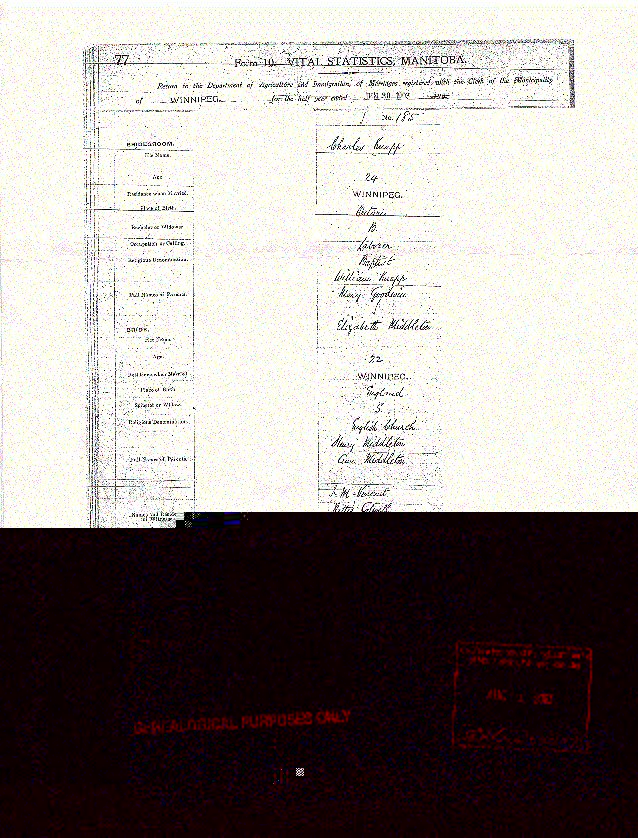 77
Form 10. VITAL STATISTICS, MANITOBA.
Return to the Department of Agriculture and Immigration, of Marriages registered with the Clerk of the Municipality
of WINNIPEG. for the half year ended
No. 185
BRIDEGROOM.
His Name. Charles Knapp
Age 24
Residence when Married. WINNIPEG.
Place of Birth. Ontario
Bachelor or Widower B.
Occupation or Calling. Laborer
Religious Denomination. Baptist
Full Names of Parents. William Knapp
Mary Goodwin
BRIDE. Elizabeth Middleton
Her Name.
Age. 22
Residence when Married WINNIPEG.
Place of Birth England
Spinster or Widow S.
Religious Denomination. English Church
Henry Middleton
Full Names of Parents. Middleton
Names and Reside
of Witness
GENEALOGICAL PURPOSES ONLY